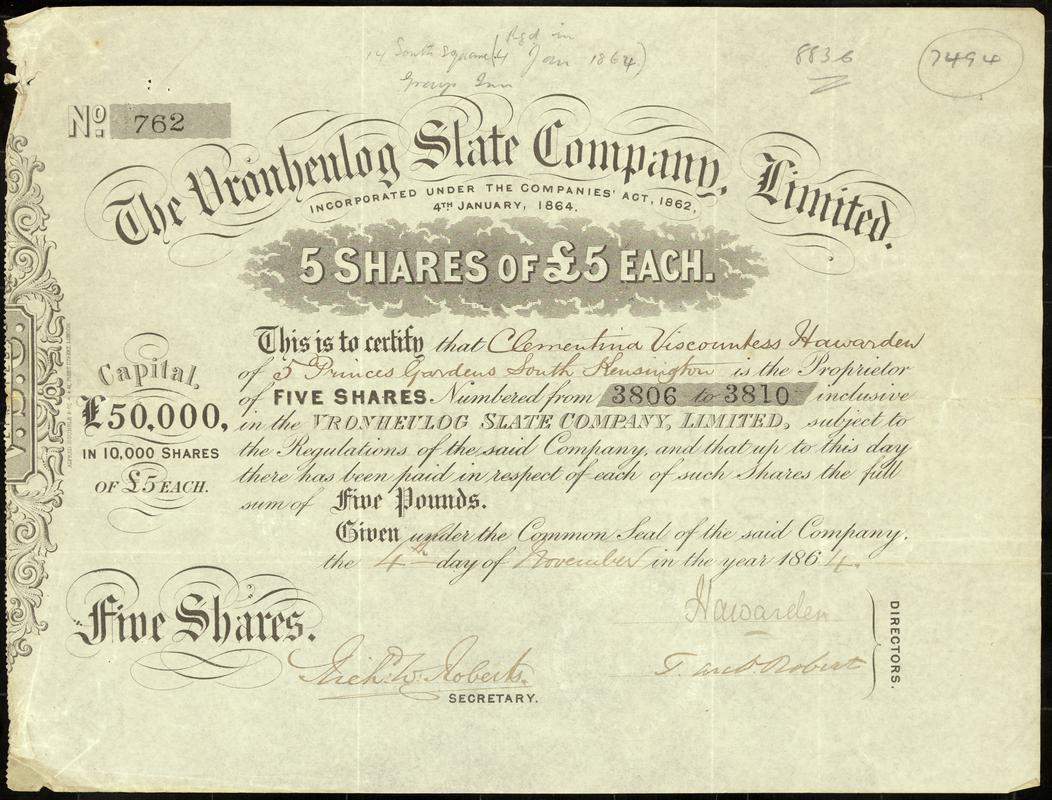 Rgd in
14 South Square (4 Jan 1864)
Grays Inn
8836
7494
No. 762
The Vronheulog Slate Company, Limited.
INCORPORATED UNDER THE COMPANIES' ACT, 1862,
4TH JANUARY, 1864.
5 SHARES OF £5 EACH.
Capital,
£50,000,
IN 10,000 SHARES
OF £5 EACH.
This is to certify that Clementina Viscountess Hawarden
of 5 Princes Gardens South Kensington is the Proprietor
of FIVE SHARES. Numbered from 3806 to 3810 inclusive
in the VRONHEULOG SLATE COMPANY, LIMITED, subject to
the Regulations of the said Company, and that up to this day
there has been paid in respect of each of such Shares the full
sum of Five Pounds.
Given under the Common Seal of the said Company,
the 4th day of November in the year 1864.
Five Shares.
Hawarden
Robert
DIRECTORS.
Richd. W. Roberts.
SECRETARY.